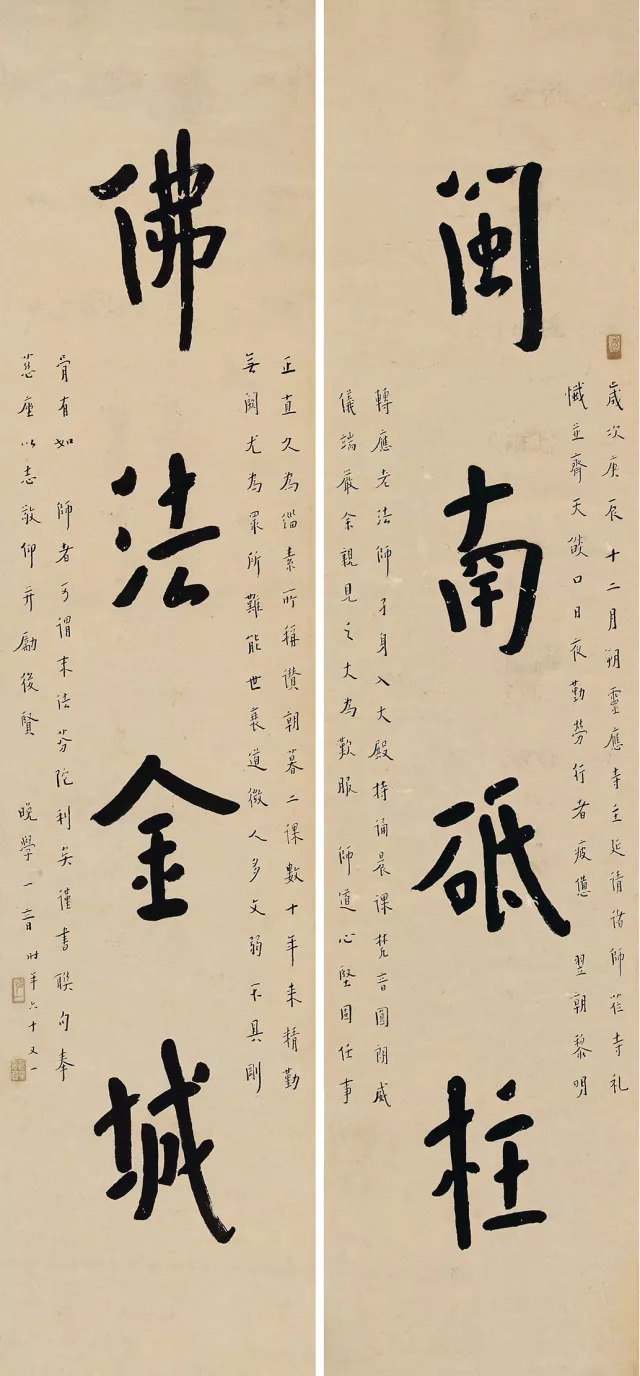 閩南砥柱
歲次庚辰十二月朔靈應寺主延請諸師蒞寺礼
懺並齋天燄口日夜勤勞行者疲憊 翌朝黎明
轉應老法師孑身入大殿持誦晨課梵音圓朗威
儀端嚴余親見之大為歎服 師道心堅固任事
佛法金城
正直久為緇素所稱讚朝暮二課數十年来精勤
無闕尤為眾所難能世衰道微人多文弱不具剛
骨有如 師者可謂末法芬陀利矣謹書聯句奉
慈座以志敬仰并勵後賢 晚學一音時年六十又一